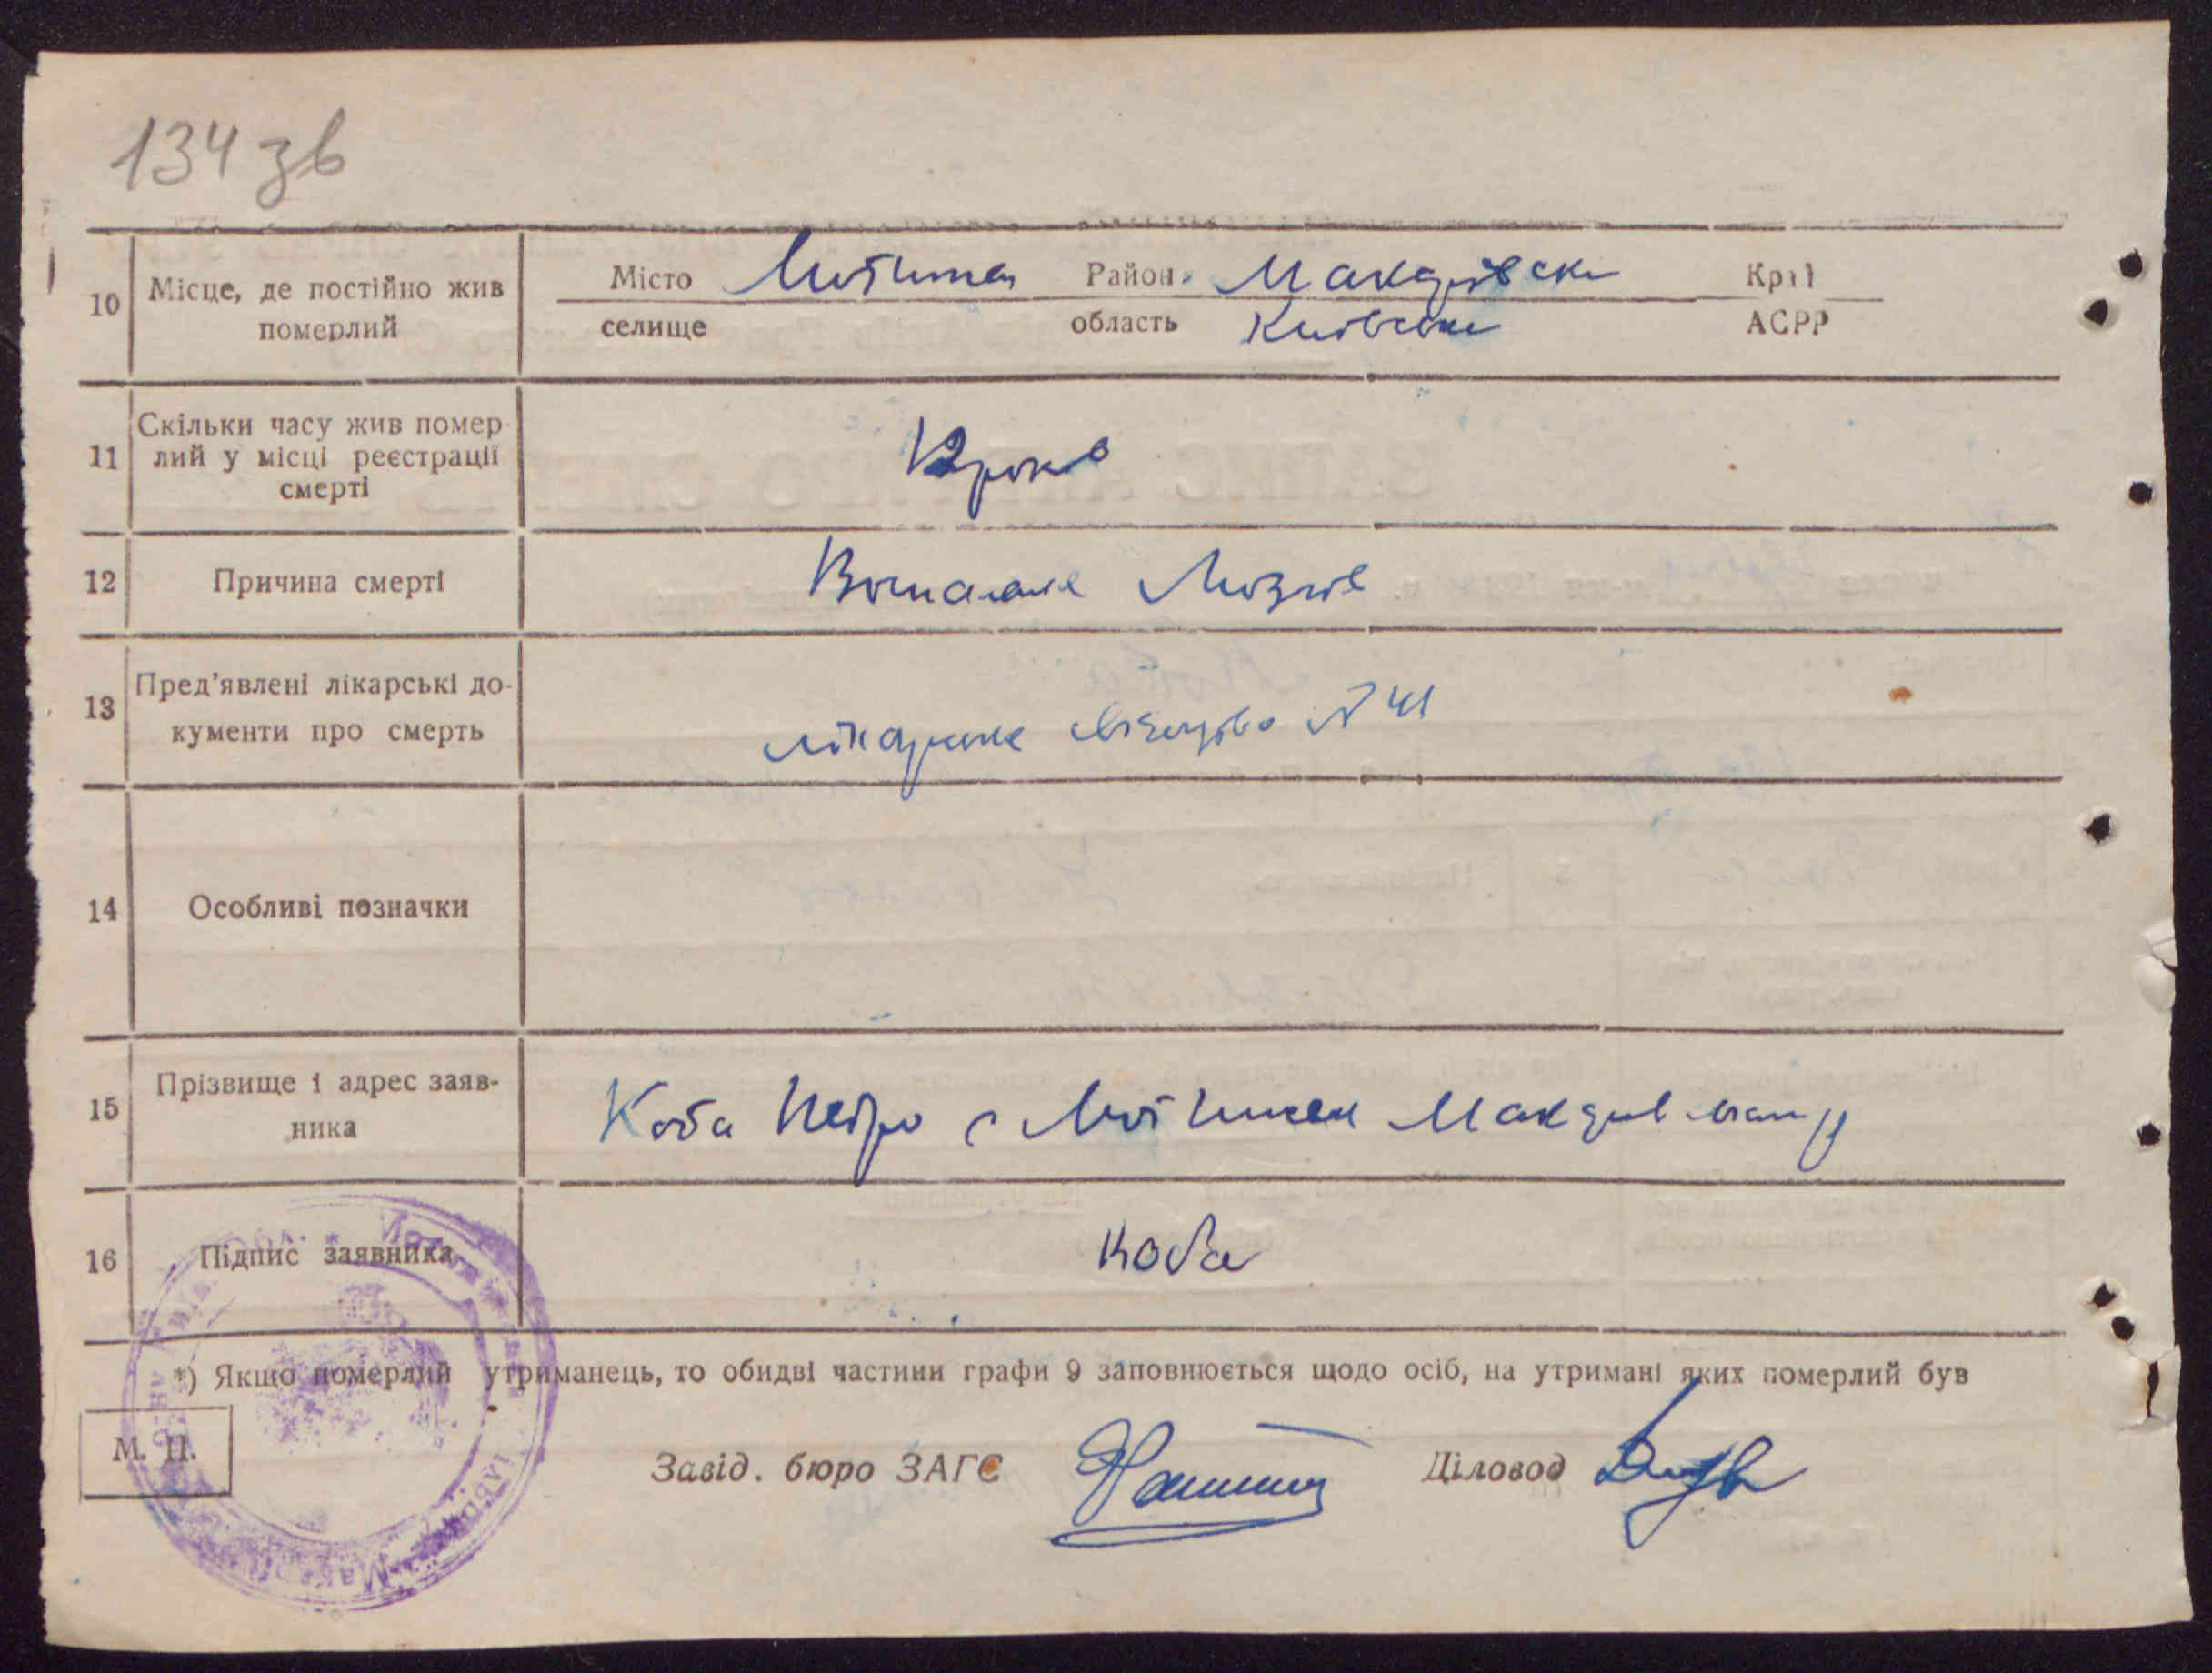 134 зв
10 Місце, де постійно жив померлий
Місто Мотижин Район Макарівськ Край
селище область Київська АСРР
11 Скільки часу жив помер
лий у місці реєстрації
смерті
років
12 Причина смерті Воспаленіє Мозгов
13 Пред'явлені лікарські до-
кументи про смерть
лікарське свідоцтво № 41
14 Особливі позначки
15 Прізвище і адрес заяв-
ника
Коба Петро с Мотижин Макарів
16 Підпис заявника Коба
*) Якщо померлий утриманець, то обидві частини графи 9 заповнюється щодо осіб, на утримані яких померлий був
М. П.
Завід. бюро ЗАГС Діловод